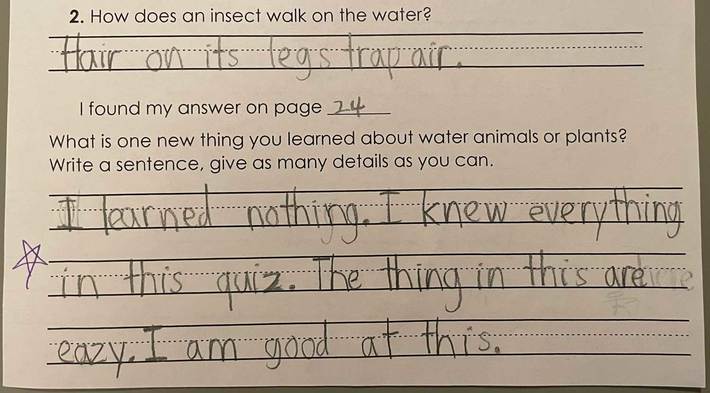 2. How does an insect walk on the water?
Hair on its legs trap air.
I found my answer on page 24
What is one new thing you learned about water animals or plants?
Write a sentence, give as many details as you can.
I learned nothing. I knew everything
in this quiz. The thing in this are
eazy. I am good at this.